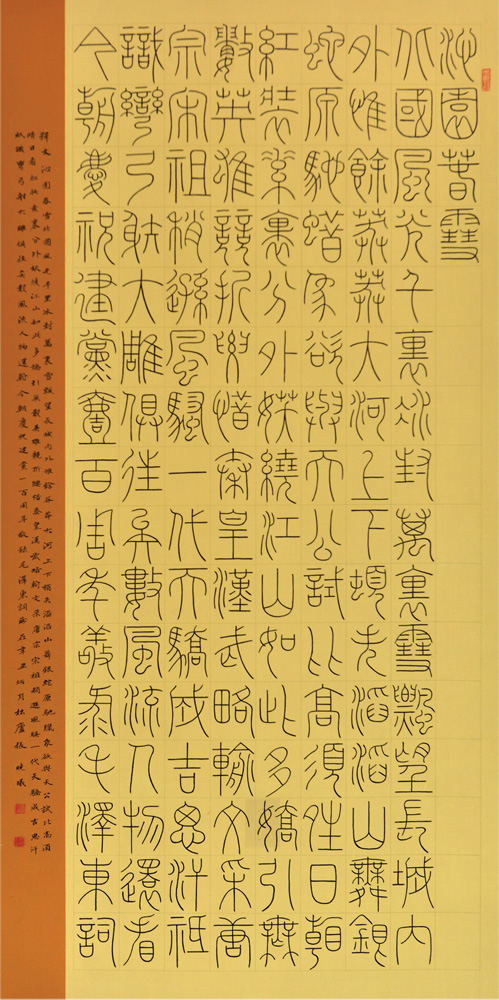 沁園春雪
北國風光千裏冰封萬裏雪飄望長城內
外惟餘莽莽大河上下頓失滔滔山舞銀
蛇原馳蜡象欲與天公試比高須晴日看
紅裝素裹分外妖嬈江山如此多嬌引無
數英雄競折腰惜秦皇漢武略輸文采唐
宗宋祖稍遜風騷一代天驕成吉思汗祇
識彎弓射大雕俱往矣數風流人物還看
今朝慶祝建黨壹百周年敬錄毛澤東詞
釋文沁園春雪北國風光千里冰封萬裏雪飄望長城內外惟餘莽莽大河上下頓失滔滔山舞銀蛇原馳蠟象欲與天公試比高須
晴日看紅妝素裹分外妖嬈江山如此多嬌引無數英雄競折腰惜秦皇漢武略輸文采唐宗宋祖稍遜風騷一代天驕成吉思汗
祇識彎弓射大雕俱往矣數風流人物還看今朝慶祝建黨一百周年敬錄毛澤東詞歲在辛丑月松廬張曉曦